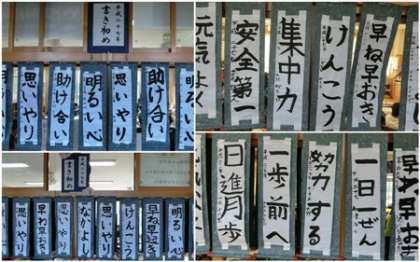 平成二十七年
書き初め
思いやり
助け合い
明るい心
思いやり
助け合い
明る
書き初め
思いやり
早ね早おき
思いやり
なかよく
けんこう
早ね早起き
明るい心
元気よく
安全第一
集中力
けんこう
早ね早おき
日進月歩
一歩前へ
努力する
一日一ぜん
早ね早